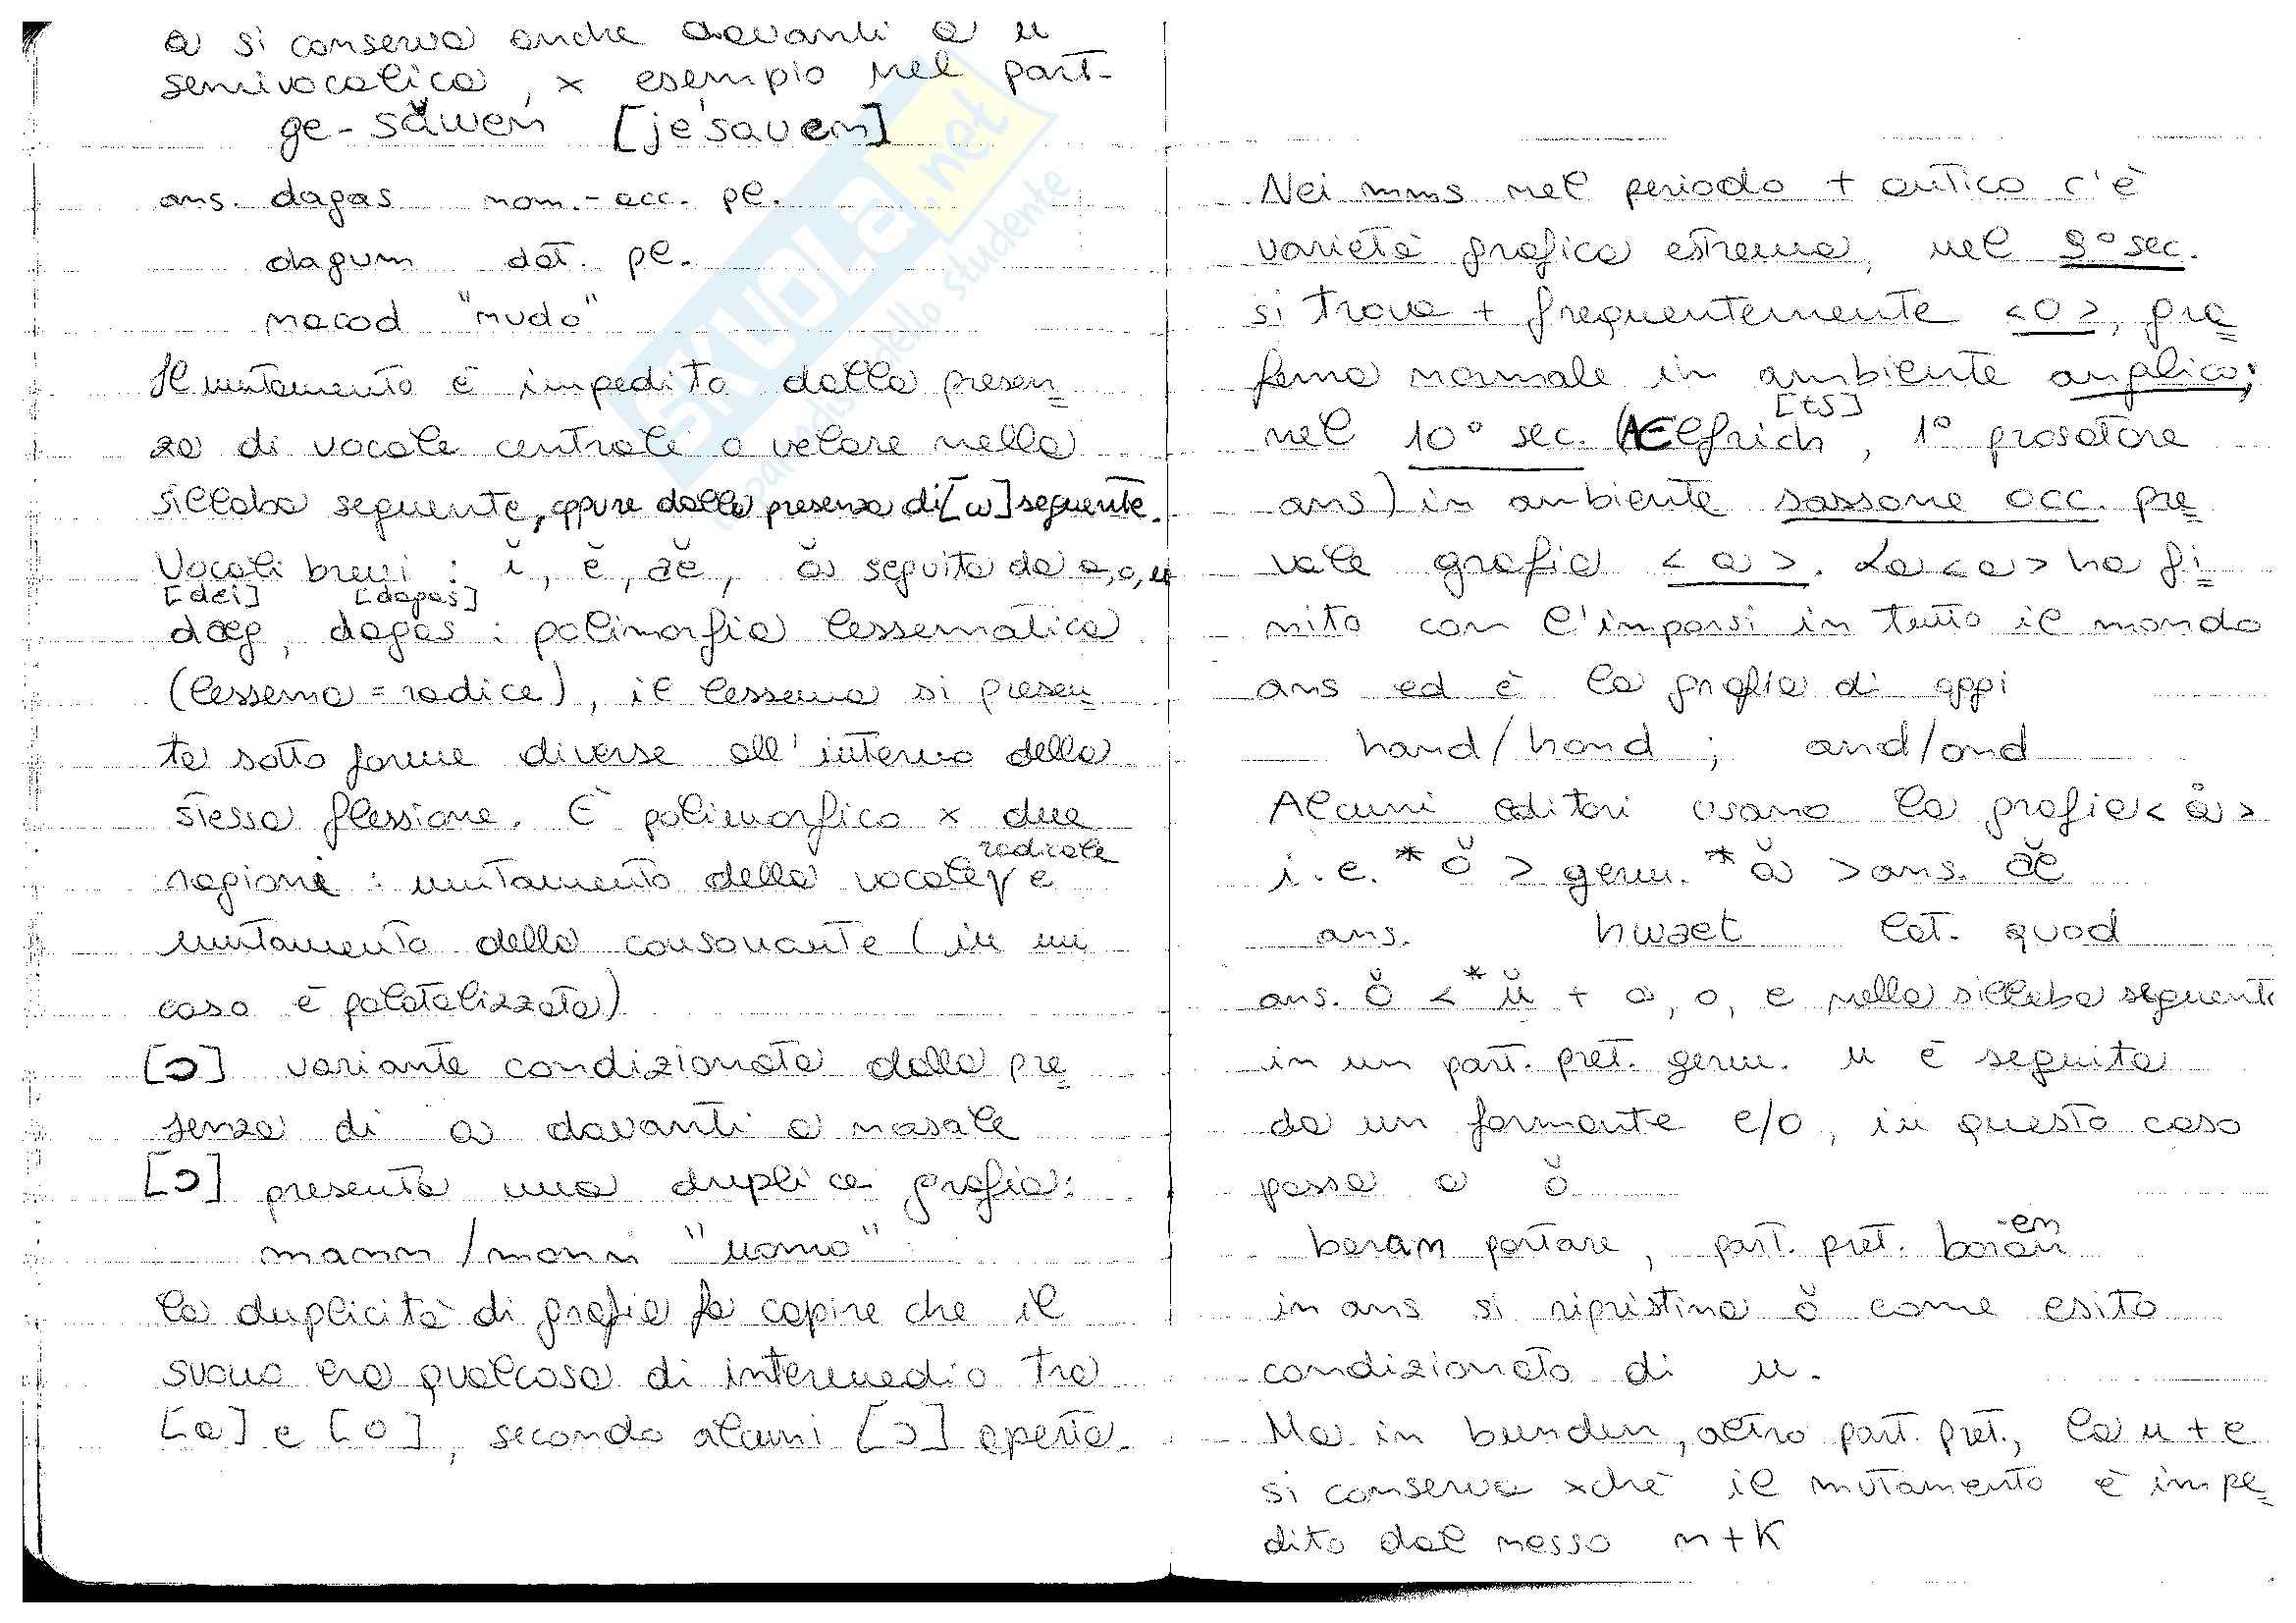 a si conserva anche davanti a u
semivocalica, x esempio nel part.
ge-săwen [je'sauen]
ans. dagas nom.-acc. pl.
dagum dat. pl.
nacod "nudo"
Il mutamento è impedito dalla presen=
za di vocale centrale o velare nella
sillaba seguente, oppure dalla presenza di [w] seguente.
Vocali brevi : ĭ, ĕ, æ̆, ă seguita da a, o, u
[dɛi] [dagas]
dæg, dagas : polimorfia lessematica
(lessema = radice), il lessema si presen=
ta sotto forme diverse all'interno della
stessa flessione. È polimorfico x due
radicale
ragioni : mutamento della vocale e
mutamento della consonante (in un
caso è palatalizzata)
[ɔ] variante condizionata dalla pre=
senza di a davanti a nasale
[ɔ] presenta una duplice grafia:
mann/monn "uomo"
la duplicità di grafia fa capire che il
suono era qualcosa di intermedio tra
[a] e [o], secondo alcuni [ɔ] aperta.
Nei mms nel periodo + antico c'è
varietà grafica estrema, nel 9° sec.
si trova + frequentemente <o>, gra=
fema normale in ambiente anglico;
[tS]
nel 10° sec. (AElfrich, 1° prosatore
ans) in ambiente sassone occ. pre=
vale grafia <a>. La <a> ha fi=
nito con l'imporsi in tutto il mondo
ans ed è la grafia di oggi
hand/hond ; and/ond
Alcuni editori usano la grafia <å>
i.e. *ŏ > germ. *ă > ans. æ̆
ans. hwaet lat. quod
ans. ŏ < *ŭ + a, o, e nella sillaba seguente
in un part. pret. germ. u è seguita
da un formante e/o, in questo caso
passa a ŏ
-en
beran portare, part. pret. boren
in ans si ripristina ŏ come esito
condizionato di u.
Ma in bunden, altro part. pret., la u + e
si conserva xchè il mutamento è impe=
dito dal nesso n+K
SKUOLA.net
dello studente